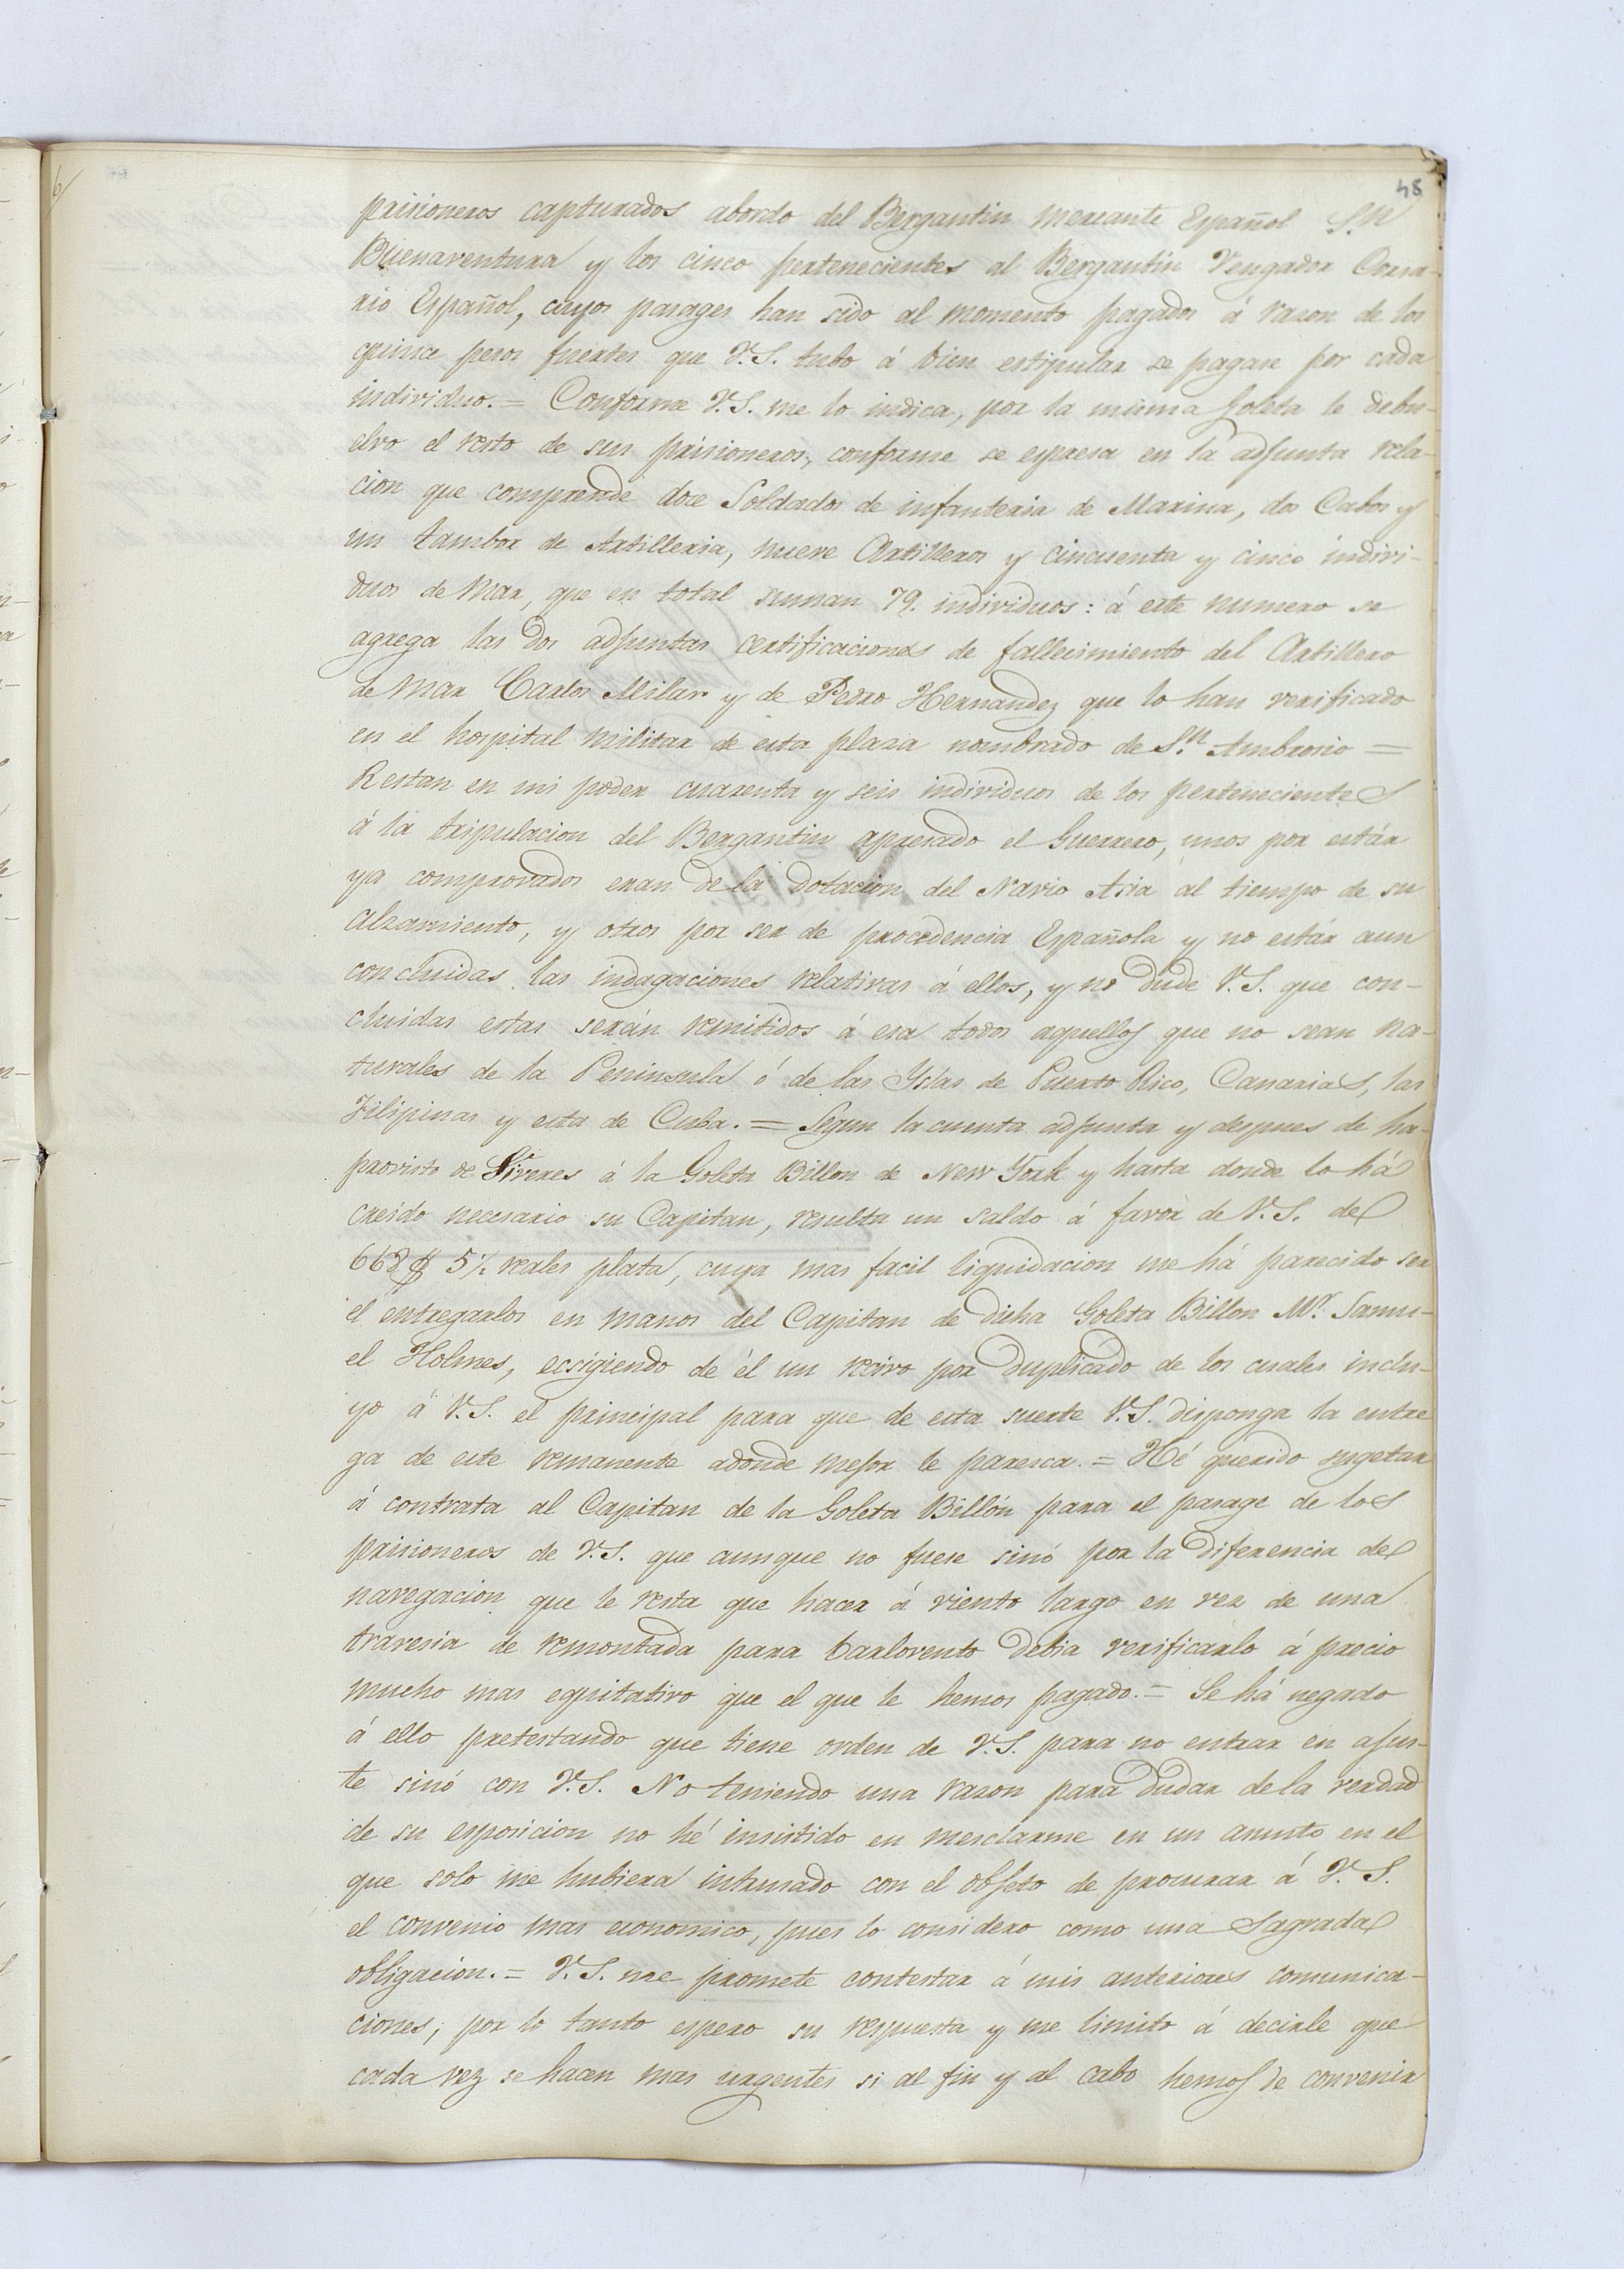 48
prisioneros capturados abordo del Bergantin mercante Español S.n
Buenaventura y los cinco pertenecientes al Bergantin Vengador Corsa-
rio Español, cuyos pasages han sido al momento pagados á razon de los
quince pesos fuertes que V.S. tubo á bien estipular se pagase por cada
individuo. = Conforme V.S. me lo indica, por la misma Goleta le debu-
elvo el resto de sus prisioneros, conforme se espresa en la adjunta rela-
cion que comprende doce Soldados de infanteria de Marina, dos Cabos y
un tambor de Artilleria, nueve Artilleros y cincuenta y cinco indivi-
duos de Mar, que en total suman 79. individuos: á este numero se
agrega las dos adjuntas certificaciones de fallecimiento del Artillero
de Mar Carlos Milan y de Pedro Hernandez que lo han verificado
en el hospital militar de esta plaza nombrado de S.n Ambrosio =
Restan en mi poder cuarenta y seis individuos de los pertenecientes
á la tripulacion del Bergantin apresado el Guerrero, unos por estár
ya comprovados eran de la dotacion del Navio Asia al tiempo de su
alzamiento, y otros por ser de procedencia Española y no estár aun
concluidas las indagaciones relativas á ellos, y no dude V.S. que con-
cluidas estas serán remitidos á esa todos aquellos que no sean na-
turales de la Peninsula ó de las Yslas de Puerto Rico, Canarias, las
Filipinas y esta de Cuba. = Segun la cuenta adjunta y depues de ha-
provisto de Viveres á la Goleta Billon de New York y hasta donde lo há
creido necesario su Capitan, resulta un saldo á favor de V.S. de
668 $ 5 ½ reales plata, cuya mas facil liquidacion me há parecido ser
el entregarlos en manos del Capitan de dicha Goleta Billon Mr. Samu-
el Holmes, ecsigiendo de él un recivo por duplicado de los cuales inclu-
yo á V.S. el principal para que de esta suerte V.S. disponga la entre
ga de este remanente adonde mejor le paresca. = Hé querido sugetar
á contrata al Capitan de la Goleta Billón para el pasage de los
prisioneros de V.S. que aunque no fuese sinó por la diferencia de
navegacion que le resta que hacer á viento largo en vez de una
travesia de remontada para barlovento debia verificarlo á precio
mucho mas equitativo que el que le hemos pagado. = Se há negado
á ello pretestando que tiene orden de V.S. para no entrar en ajus-
te sinó con V.S. No teniendo una razon para dudar de la verdad
de su esposicion no hé insistido en mesclarme en un asunto en el
que solo me hubiera intrusado con el objeto de procurar á V.S.
el convenio mas economico, pues lo considero como una Sagrada
obligacion. = V.S. me promete contestar á mis anteriores comunica-
ciones, por lo tanto espero su respuesta y me limito á decirle que
cada vez se hacen mas urgentes si al fin y al cabo hemos de convenir